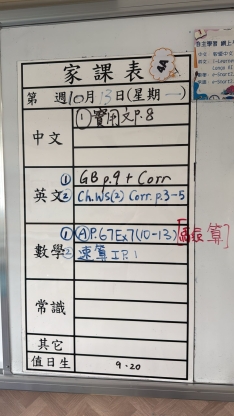 家課表
第 週10月13日(星期一)
中文 ①實用文P.8
英文 ① GB p.9 + Corr
② Ch.WS(2) Corr. p.3-5
數學 ① (A)P.67Ex7(10-13)
② 速算 I P.1
常識
其它
值日生 9.20